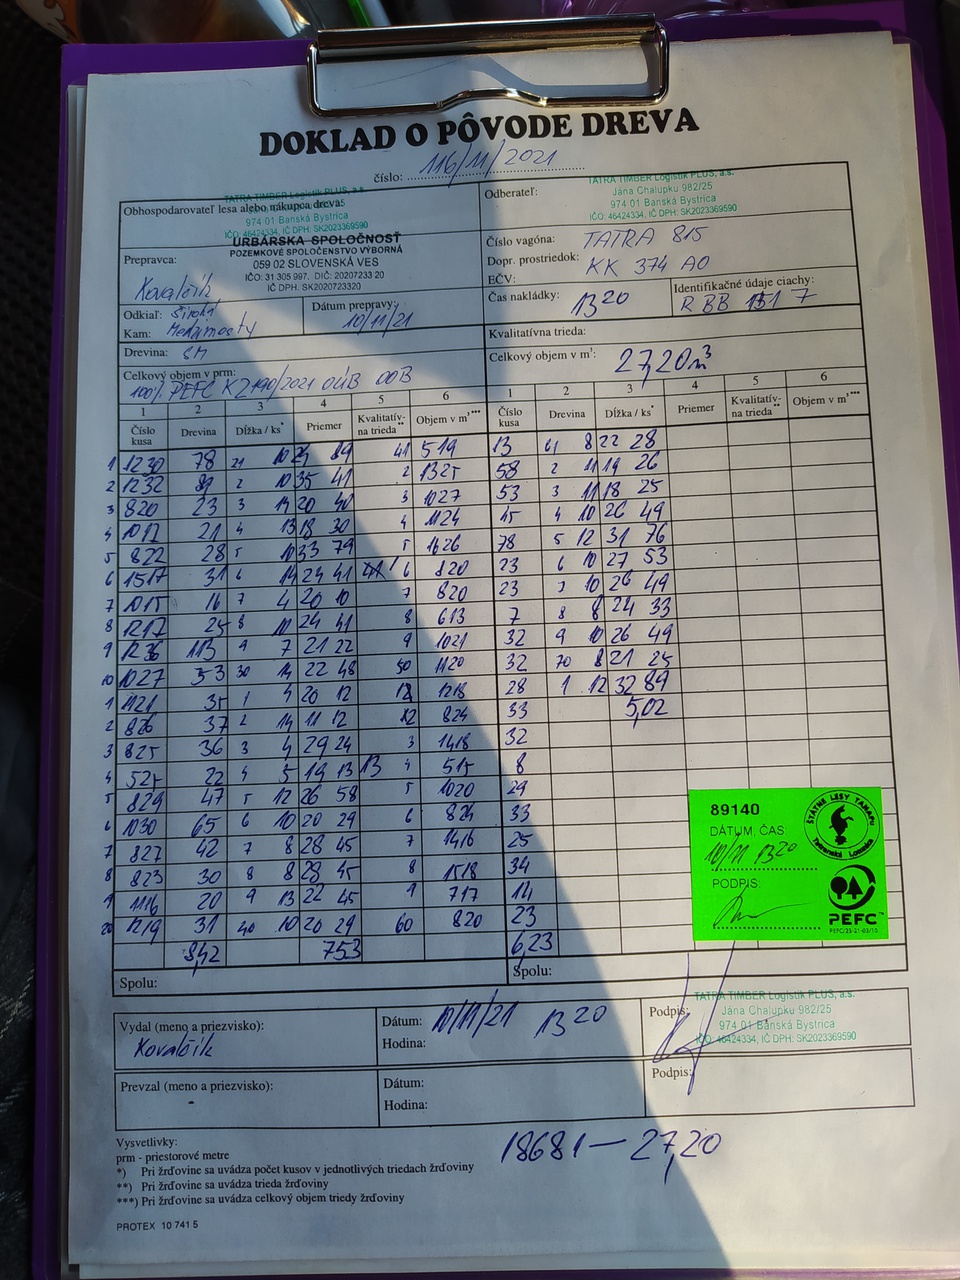 DOKLAD O PÔVODE DREVA
číslo: 116/11/2021
Obhospodarovateľ lesa alebo nákupca dreva:
TATRA TIMBER Logistik PLUS, a.s.
974 01 Banská Bystrica
IČO: 46424334, IČ DPH: SK2023369590
Odberateľ:
TATRA TIMBER Logistik PLUS, a.s.
Jána Chalupku 982/25
974 01 Banská Bystrica
IČO: 46424334, IČ DPH: SK2023369590
URBÁRSKA SPOLOČNOSŤ
POZEMKOVÉ SPOLOČENSTVO VÝBORNÁ
059 02 SLOVENSKÁ VES
IČO: 31 305 997, DIČ: 20207233 20
IČ DPH: SK2020723320
Prepravca: Kovalčík
Číslo vagóna: TATRA 815
Dopr. prostriedok:
EČV: KK 374 AO
Odkiaľ: Široká
Kam:
Dátum prepravy: 10/11/21
Čas nakládky: 13 20
Identifikačné údaje ciachy:
R BB 131 7
Drevina: SM
Kvalitatívna trieda:
Celkový objem v prm:
100% PEFC
Celkový objem v m³: 27,20m³
1 2 3 4 5 6 1 2 3 4 5 6
Číslo kusa Drevina Dĺžka / ks* Priemer Kvalitatív-na trieda** Objem v m³*** Číslo kusa Drevina Dĺžka / ks* Priemer Kvalitatív-na trieda** Objem v m³***
1 1230 78 21 10 89 41 519 13 61 8 22 28
2 1232 2 10 35 41 2 1325 58 2 11 19 26
3 820 23 3 14 20 40 3 1027 53 3 11 18 25
4 1017 21 4 13 18 30 4 1124 45 4 10 26 49
5 822 28 5 10 33 79 5 1626 78 5 12 31 76
6 1517 31 6 14 24 41 6 820 23 6 10 27 53
7 1015 16 7 4 20 10 7 820 23 10 26 49
8 1217 25 8 10 24 41 8 613 7 8 8 24 33
9 1236 113 9 7 21 22 9 1021 32 9 10 26 49
10 1027 53 30 14 22 48 50 1120 32 70 8 21 25
1 1121 35 1 4 20 12 1218 28 1 12 32 89
2 826 37 2 14 11 12 824 33 5,02
3 825 36 3 4 29 24 3 1418 32
4 525 22 4 5 19 13 4 515 8
5 829 47 5 12 26 58 5 1020 29
6 1030 65 6 10 20 29 6 824 33
7 827 42 7 8 28 45 7 1416 25
8 823 30 8 8 28 45 8 1518 34
9 1116 20 9 13 22 45 9 717 14
20 1219 31 40 10 20 29 60 820 23
8,42 7,53 6,23
89140
DÁTUM, ČAS:
10/11 13 20
PODPIS:
ŠTÁTNE LESY TANAPu
Tatranská Lomnica
PEFC™
PEFC/23-21-03/10
Spolu:
Spolu:
Vydal (meno a priezvisko):
Kovalčík
Dátum: 10/11/21 13 20
Hodina:
Podpis:
TATRA TIMBER Logistik PLUS, a.s.
Jána Chalupku 982/25
974 01 Banská Bystrica
IČO: 46424334, IČ DPH: SK2023369590
Prevzal (meno a priezvisko):
-
Dátum:
Hodina:
Podpis:
18681 — 27,20
Vysvetlivky:
prm - priestorové metre
*) Pri žrďovine sa uvádza počet kusov v jednotlivých triedach žrďoviny
**) Pri žrďovine sa uvádza trieda žrďoviny
***) Pri žrďovine sa uvádza celkový objem triedy žrďoviny
PROTEX 10 741 5